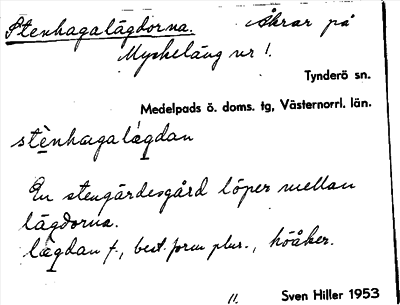 Stenhagalägdorna. Åkrar på
Myckeläng nr 1.
Tynderö sn.
Medelpads ö. doms. tg, Västernorrl. län.
stènhagalägdan
En stengärdesgård löper mellan
lägdorna.
lägdan f., best. form plur., höåker.
11. Sven Hiller 1953